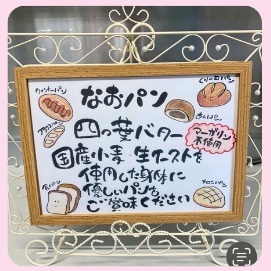 なおパン
ウィンナーパン
くりーむパン
あんぱん
四つ葉バター
マーガリン
不使用
国産小麦 生イーストを
使用した身体に
優しいパンを
ご賞味ください
食パン
メロンパン